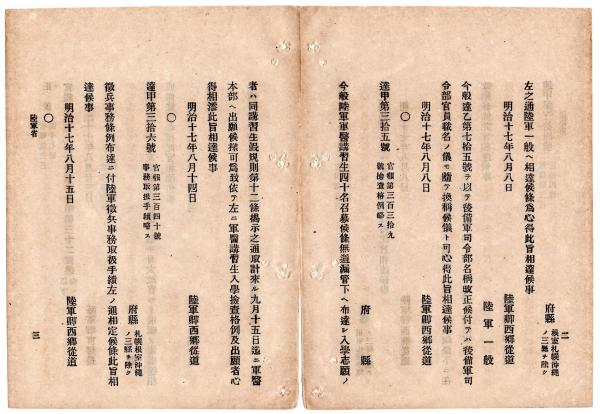 二
府縣 根室札幌沖繩ノ三縣ヲ除ク
左之通陸軍一般ヘ相達候條爲心得此旨相達候事
明治十七年八月八日
陸軍卿西鄕從道
陸軍一般
今般達乙第七拾五號ヲ以テ後備軍司令部名稱改正候付テハ後備軍司
令部官員職名ノ儀モ隨テ換稱候儀ト可心得此旨相達候事
明治十七年八月八日
陸軍卿西鄕從道
〇
達甲第三拾五號
官報第三百三十九
號檢査格例略ス
府縣
今般陸軍軍醫講習生四十名召募候條無遺漏管下ヘ布達シ入學志願ノ
者ハ同講習生假規則第十二條揭示之通取計來ル九月十五日迄ニ軍醫
本部ヘ出願候樣可爲致依テ左ニ軍醫講習生入學檢査格例及出願者心
得相添此旨相達候事
明治十七年八月十四日
陸軍卿西鄕從道
〇
達甲第三拾六號
官報第三百四十號
事務取扱手續略ス
府縣 札幌根室沖繩ノ三縣ヲ除ク
徵兵事務條例布達ニ付陸軍徵兵事務取扱手續左ノ通相定候條此旨相
達候事
明治十七年八月十五日
陸軍卿西鄕從道
〇
陸軍省
三